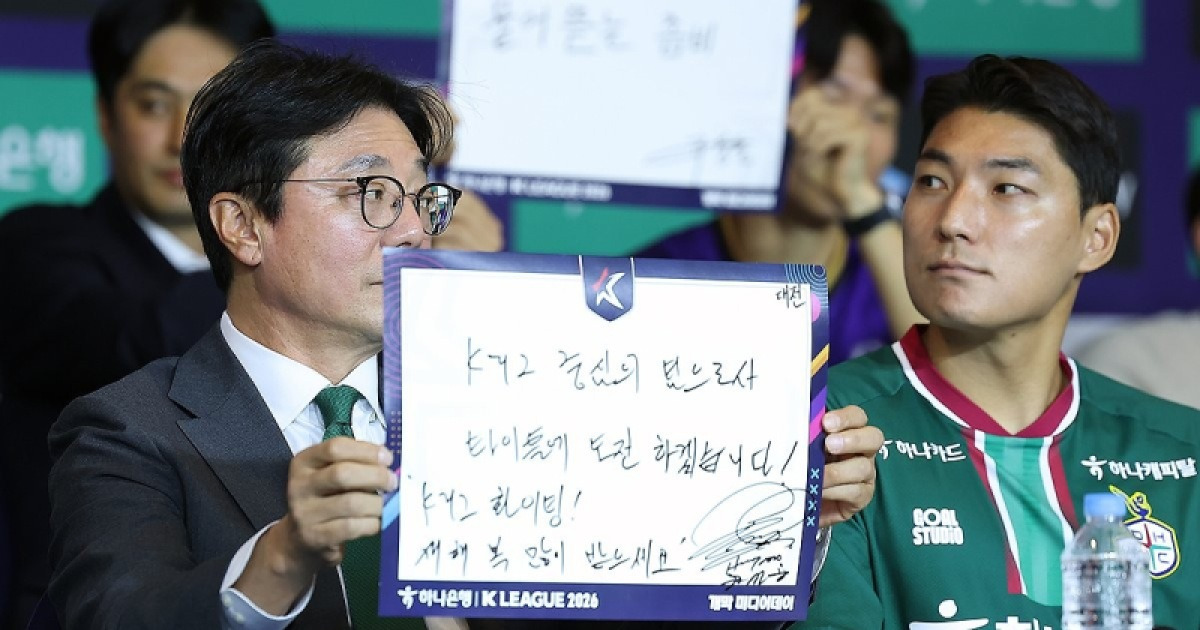 대전
K리그 중심의 팀으로서
타이틀에 도전 하겠습니다!
K리그 화이팅!
새해 복 많이 받으세요
하나은행 | K LEAGUE 2026
개막 미디어데이
K LEAGUE 2026
은행
하나카드
하나캐피탈
GOAL
STUDIO